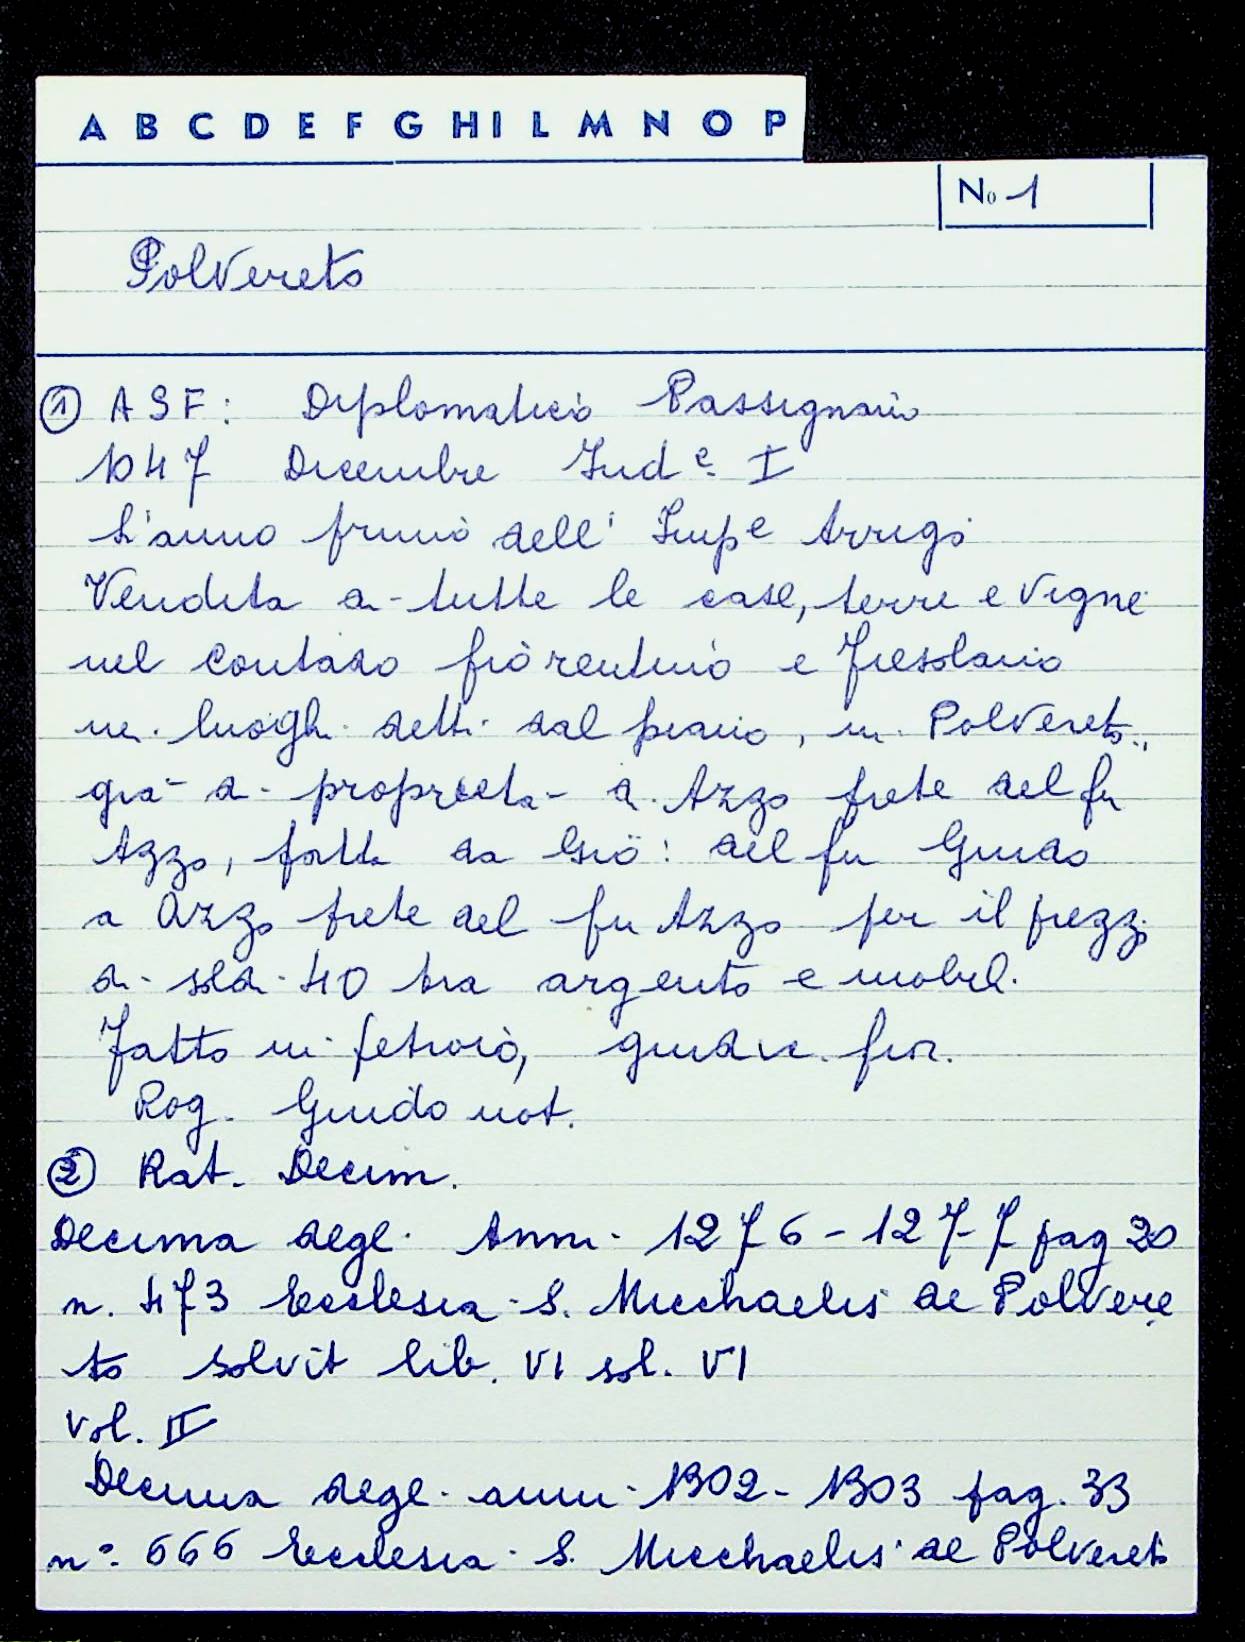 A B C D E F G H I L M N O P
No 1
Polvereto
① ASF: Diplomatico Passignano
1047 Dicembre Ind.e I
L'anno primo dell' Imp.e Arrigo
Vendita di tutte le case, terre e vigne
nel contado fiorentino e fiesolano
nei luoghi detti dal piano, in Polvereto..
già di proprietà di Azzo prete del fu
Azzo, fatta da Giò: del fu Guido
a Azzo prete del fu Azzo per il prezzo
di soldi 40 tra argento e mobil.
Fatto in petroio, giudic. fior.
Rog. Guido not.
② Rat. Decim.
Decima degl. Anni 1276-1277 pag 20
n. 473 Ecclesia S. Micchaelis de Polvere
to solvit lib. VI sol. VI
Vol. II
Decima degl. anni 1302-1303 pag. 33
n° 666 Ecclesia S. Micchaelis de Polvereto